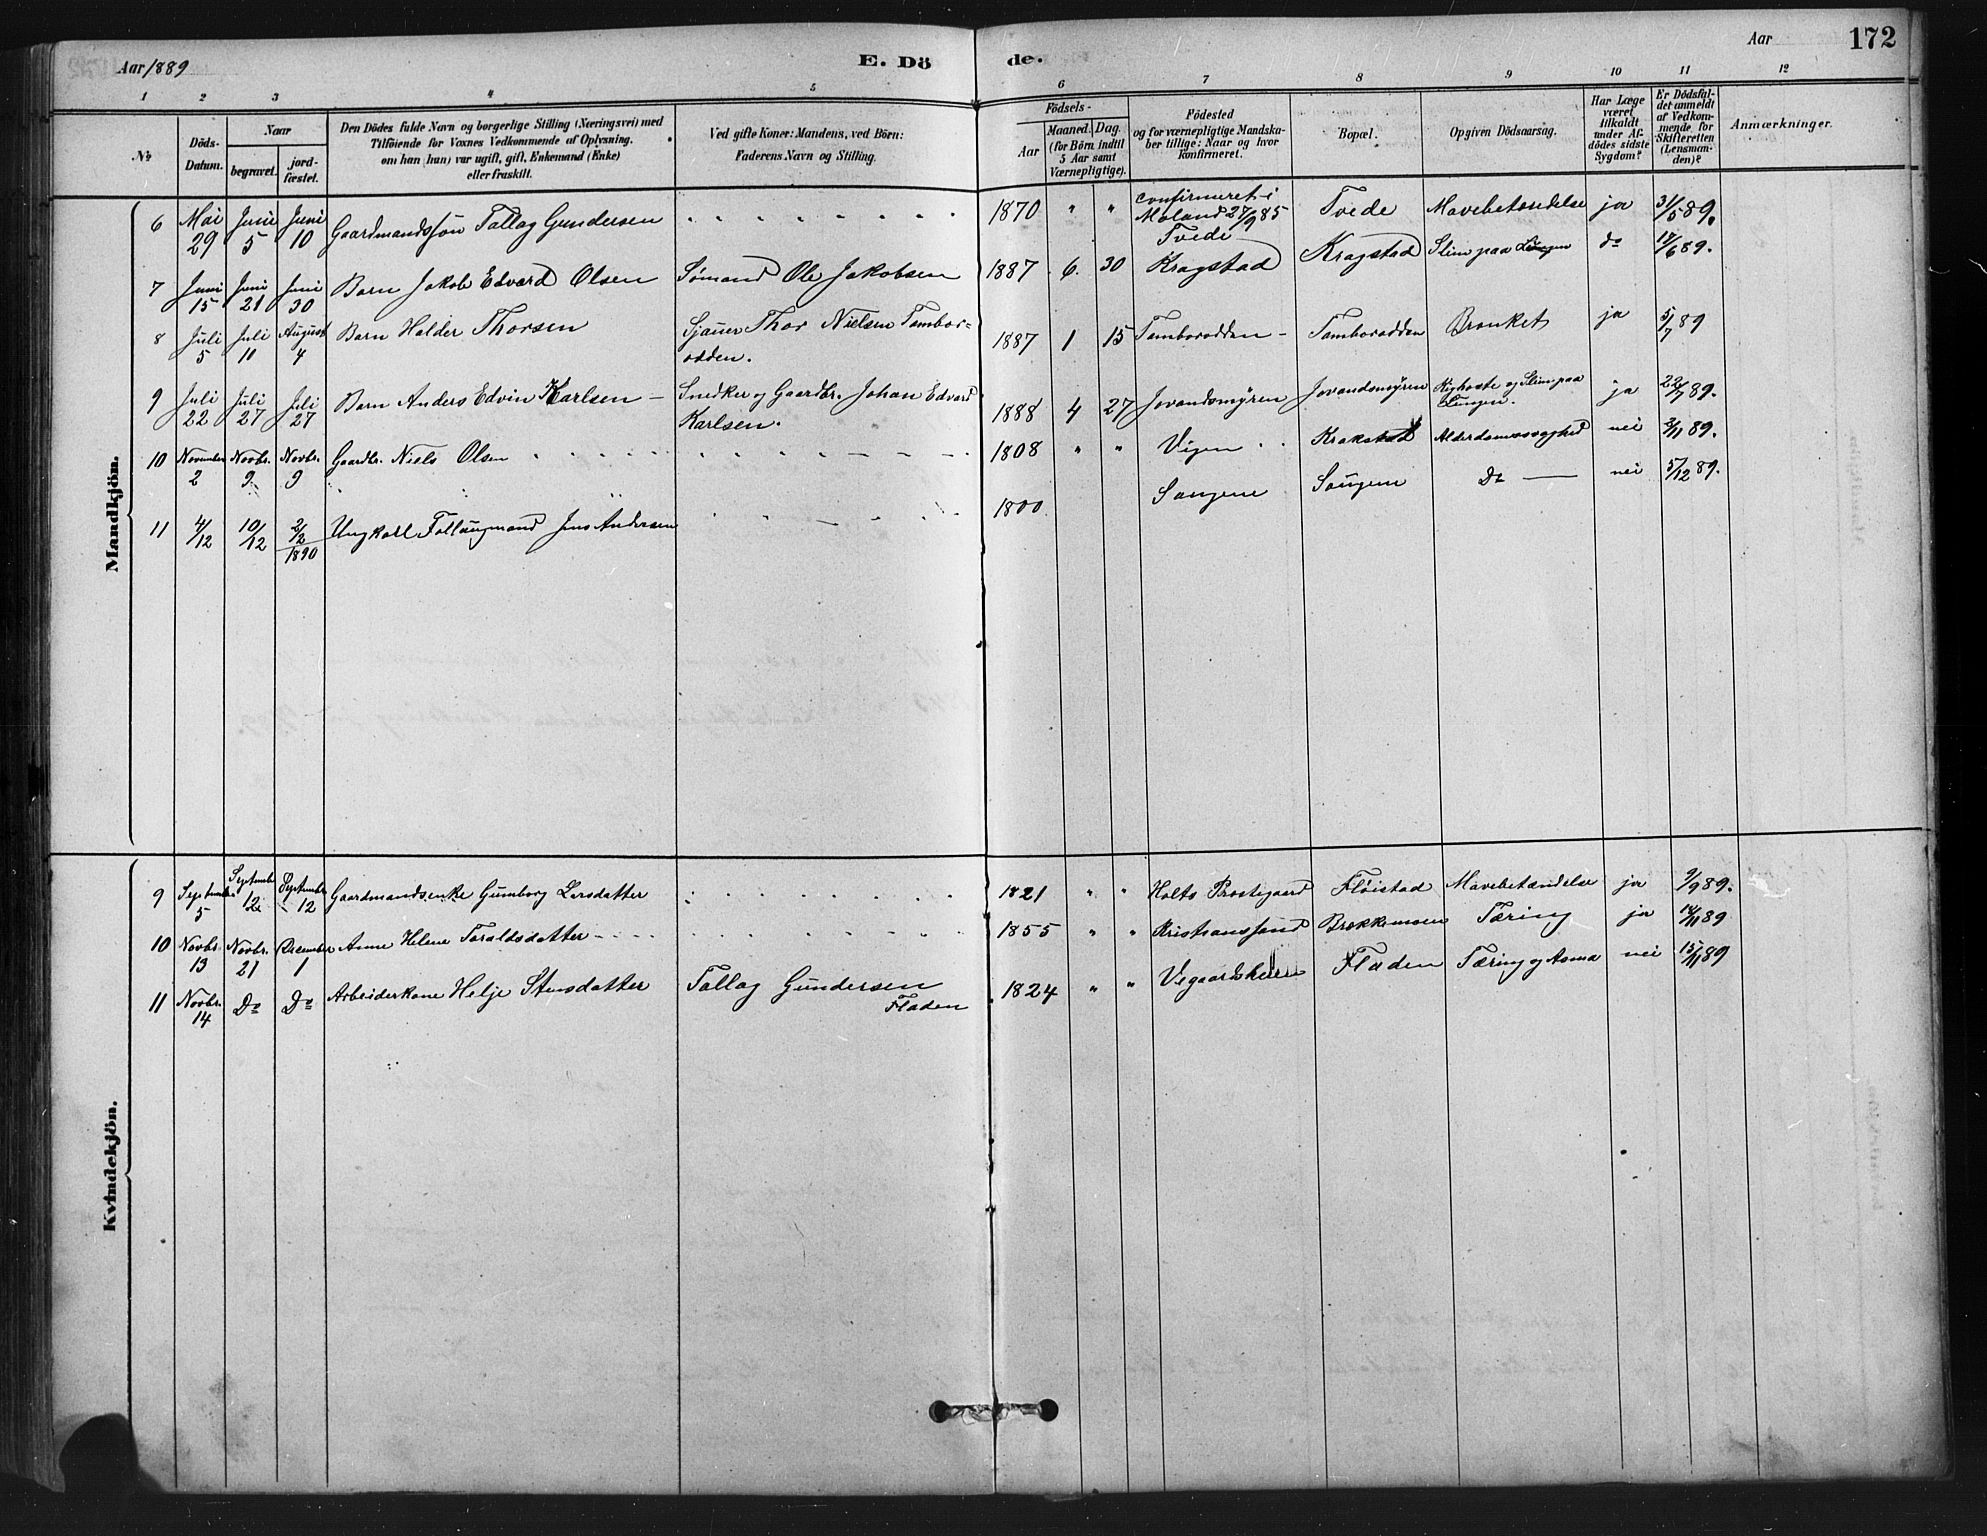 Aar 1889
E. Dö
de.
Aar
172
1 2 3 4 5 6 7 8 9 10 11 12
№
Döds-
Datum.
Naar
begravet.
jord-
fæstet.
Den Dödes fulde Navn og borgerlige Stilling (Næringsvei) med
Tilföiende for Voxnes Vedkommende af Oplysning,
om han (hun) var ugift, gift, Enkemand (Enke)
eller fraskilt.
Ved gifte Koner: Mandens, ved Börn:
Faderens Navn og Stilling.
Födsels-
Aar
Maaned. Dag.
(for Börn indtil
5 Aar samt
Værnepligtige).
Födested
og for værnepligtige Mandska-
ber tillige: Naar og hvor
konfirmeret.
Bopæl.
Opgiven Dödsaarsag.
Har Læge
været
tilkaldt
under Af-
dödes sidste
Sygdom?
Er Dödsfal-
det anmeldt
af Vedkom-
mende for
Skifteretten
(Lensman-
den)?
Anmærkninger.
Mandkjön.
6 Mai 29 Juni 5 Juni 10 Gaardmandssøn Tallag Gundersen 1870 " " confirmeret i Moland 27/9 85 Tvede Tvede Mavebetændelse ja 31/5 89.
7 Juni 15 Juni 21 Juni 30 Barn Jakob Edvard Olsen Sømand Ole Jakobsen 1887 6. 30 Kragstad Kragstad Slim paa Lungen do 17/6 89.
8 Juli 5 Juli 10 August 4 Barn Halder Thorsen Sjauer Thor Nielsen Tambor=
odden. 1887 1 15 Tamborodden - Tamborodden Bronket ja 5/7 89
9 Juli 22 Juli 27 Juli 27 Barn Anders Edvin Karlsen - Snedker og Gaardbr. Johan Edvard
Karlsen. 1888 4 27 Jovandsmyren Jovandsmyren Kighoste og Slim paa Lungen. ja 22/7 89.
10 November 2 Novbr. 9 Novbr. 9 Gaardbr. Niels Olsen 1808 " " Vigen Krakstad Alderdomssvaghed nei 2/11 89.
11 4/12 10/12 2/2 1890 Ungkarl Jens Andersen 1800 Saugene Saugene Do nei 5/12 89.
Kvindekjön.
9 September 5 September 12 September 12 Gaardmandsenke Gumborg Larsdatter 1821 " " Holts Prestegaard Fløistad Mavebetændelse ja 9/9 89.
10 Novbr. 13 Novbr. 21 December 1 Anne Helene Taraldsdatter 1855 " " Kristianssand Brækkemoen Tæring ja 14/11 89
11 Novbr. 14 Do Do Arbeiderkone Helje Stensdatter Tallag Gundersen
Fladen 1824 " " Vegaardsheien Fladen Tæring og Asma nei 15/11 89